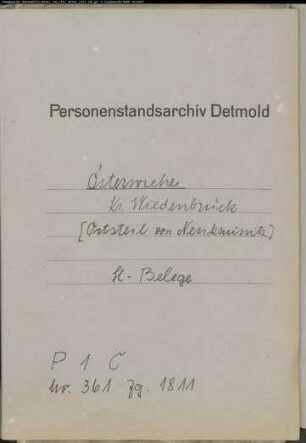 Personenstandsarchiv Detmold
Österwiehe
Kr. Wiedenbrück
(Ortsteil von Neukaunitz)
H - Belege
P 1 C
Nr. 361 Zg. 1811